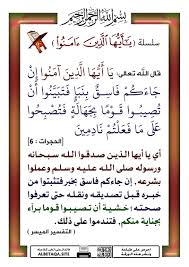 بسم الله الرحمن الرحيم
سلسلة ﴿يَا أَيُّهَا الَّذِينَ ءَامَنُوا﴾
قال الله تعالى: يَا أَيُّهَا الَّذِينَ آمَنُوا إِن
جَاءَكُمْ فَاسِقٌ بِنَبَإٍ فَتَبَيَّنُوا أَن
تُصِيبُوا قَوْمًا بِجَهَالَةٍ فَتُصْبِحُوا
عَلَىٰ مَا فَعَلْتُمْ نَادِمِينَ
[الحجرات : 6]
أي يا أيها الذين صدقوا الله سبحانه
ورسوله صلى الله عليه وسلم وعملوا
بشرعه، إن جاءكم فاسق بخبر فتثبتوا من
خبره قبل تصديقه ونقله حتى تعرفوا
صحته؛ خشية أن تصيبوا قوما برآء
بجناية منكم، فتندموا على ذلك.
( التفسير الميسر )
ALBETAQA.SITE